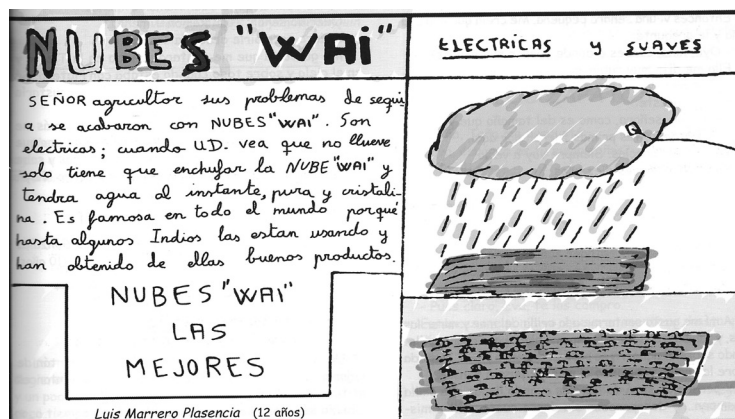 NUBES "WAi"
ELECTRICAS y SUAVES
SEÑOR agricultor sus problemas de sequi
a se acabaron con NUBES "WAI". Son
electricas; cuando UD. vea que no llueve
solo tiene que enchufar la NUBE "WAI" y
tendra agua al instante, pura y cristali-
na. Es famosa en todo el mundo porqué
hasta algunos Indios las estan usando y
han obtenido de ellas buenos productos.
NUBES "WAI"
LAS
MEJORES
Luis Marrero Plasencia (12 años)